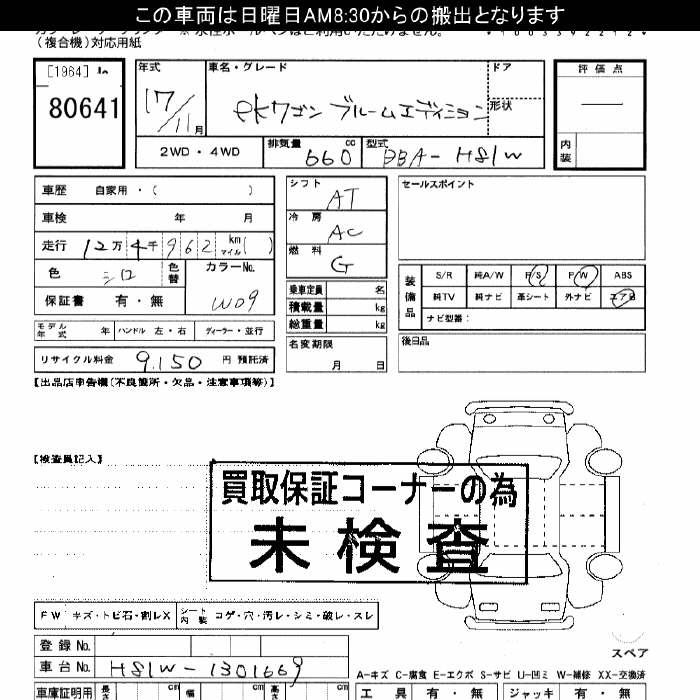 この車両は日曜日AM8:30からの搬出となります
(複合機)対応用紙
[1964]
80641
年式 17/11月
車名・グレード ekワゴン ブルームエディション
ドア
形状
評価点
—
内装
2WD・4WD
排気量 660 cc
型式 DBA-H81W
車歴 自家用・( )
車検 年 月
走行 12万4千962 km マイル( )
色 シロ 色替
カラーNo. W09
保証書 有・無
モデル年式 年 ハンドル 左・右 ディーラー・並行
リサイクル料金 9,150 円 預託済
シフト AT
冷房 AC
燃料 G
乗車定員 名
積載量 kg
総重量 kg
名変期限
月 日
セールスポイント
装備品
S/R 純A/W P/S P/W ABS
純TV 純ナビ 革シート 外ナビ エアB
ナビ型番:
後日品
【出品店申告欄(不良箇所・欠品・注意事項等)】
【検査員記入】
買取保証コーナーの為
未検査
FW キズ・トビ石・割レX
シート内装 コゲ・穴・汚レ・シミ・破レ・スレ
登録No.
車台No. H81W-1301669
スペア
A-キズ C-腐食 E-エクボ S-サビ U-凹ミ W-補修 XX-交換済
車庫証明用 長さ cm 幅 cm 高さ cm
工具 有・無 ジャッキ 有・無